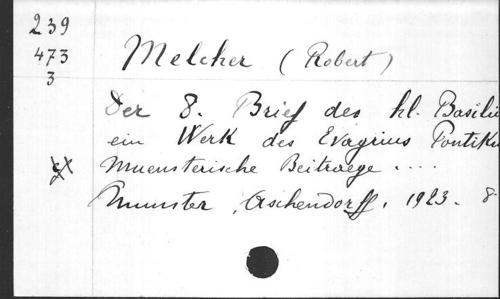 239
473
3
Melcher (Robert)
Der 8. Brief des hl. Basiliu
ein Werk des Evagrius Pontiku
Muensterische Beitraege ....
Munster, Aschendorff, 1923. 8